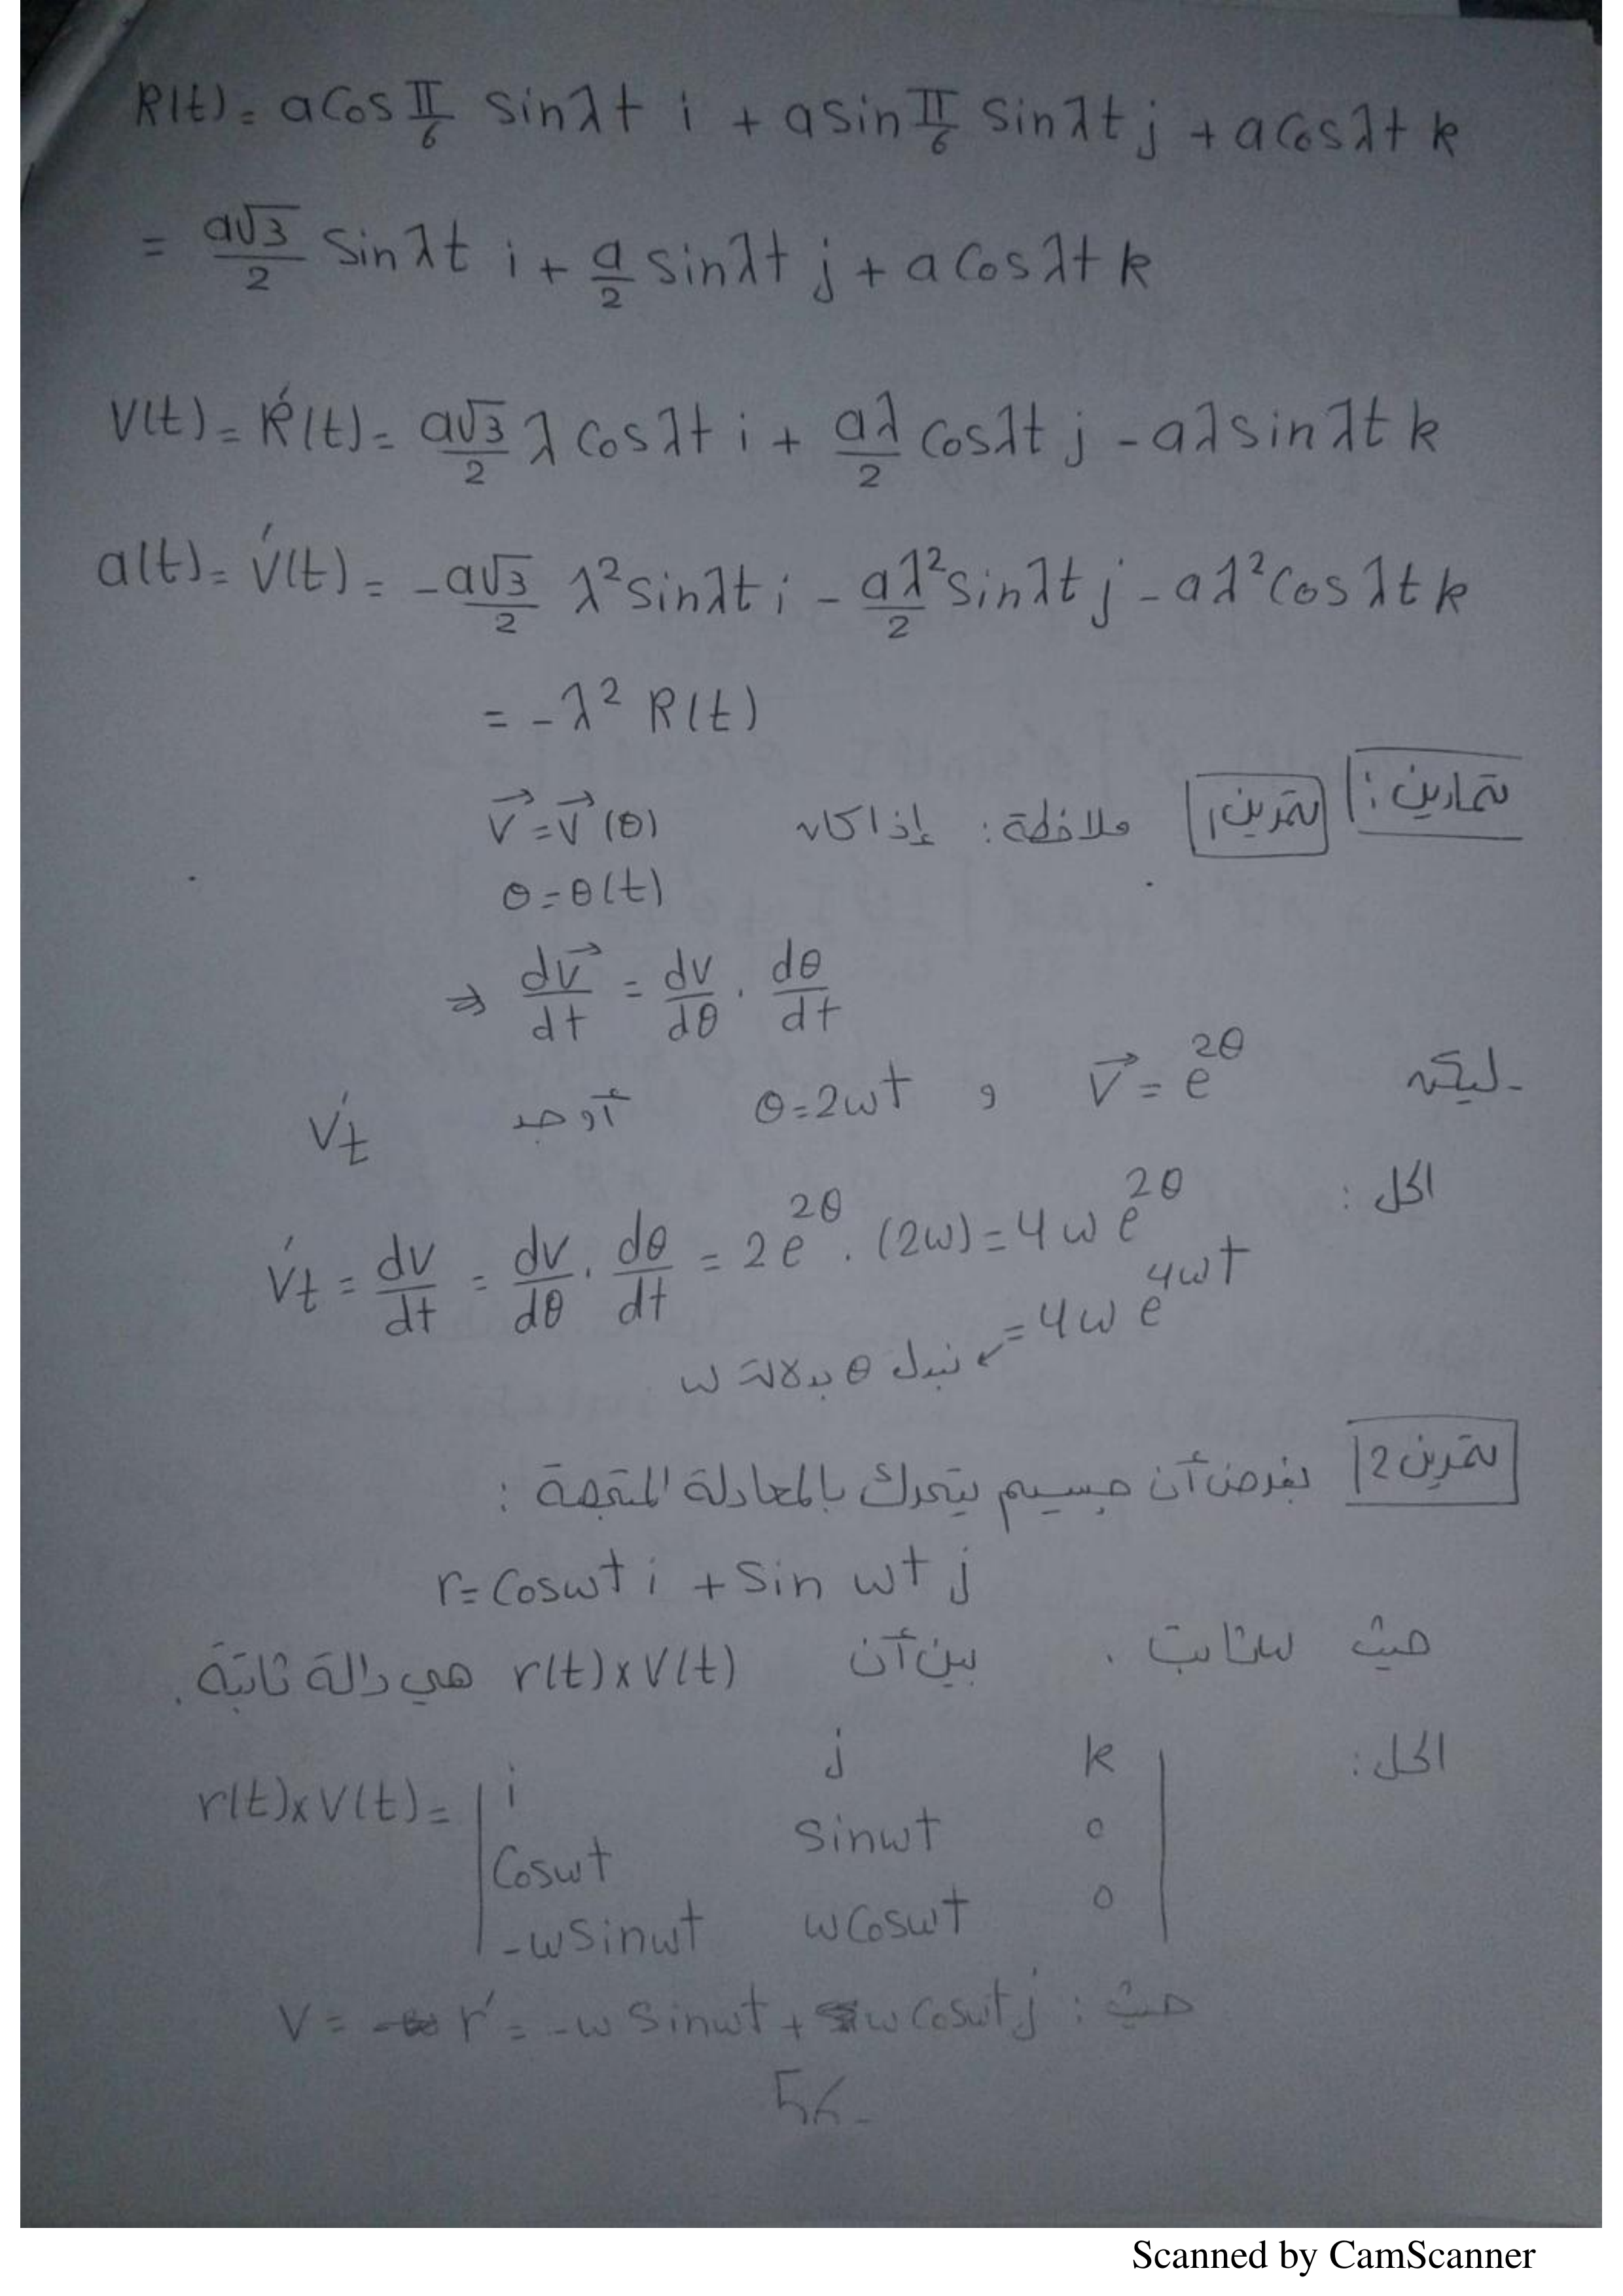 R(t) = a cos π/6 sin λt i + a sin π/6 sin λt j + a cos λt k
= a√3/2 sin λt i + a/2 sin λt j + a cos λt k
V(t) = Ŕ(t) = a√3/2 λ cos λt i + aλ/2 cos λt j - aλ sin λt k
a(t) = V́(t) = -a√3/2 λ² sin λt i - aλ²/2 sin λt j - aλ² cos λt k
= -λ² R(t)
تمارين:
تمرين 1 ملاحظة: إذا كان V⃗ = V⃗(θ)
θ = θ(t)
⇒ dV⃗/dt = dv/dθ . dθ/dt
ليكن V⃗ = e^2θ و θ = 2ωt أوجد V́t
الحل:
V́t = dv/dt = dv/dθ . dθ/dt = 2e^2θ . (2ω) = 4ω e^2θ
= 4ω e^4ωt
نبدل θ بدلالة ω
تمرين 2 بفرض أن جسيم يتحرك بالمعادلة المتجهة:
r = cos ωt i + sin ωt j
حيث ω ثابت. بين أن r(t) x V(t) هي دالة ثابتة.
الحل:
r(t) x V(t) = | i j k
cos ωt sin ωt 0
-ω sin ωt ω cos ωt 0 |
حيث: V = r' = -ω sin ωt + ω cos ωt j
Scanned by CamScanner